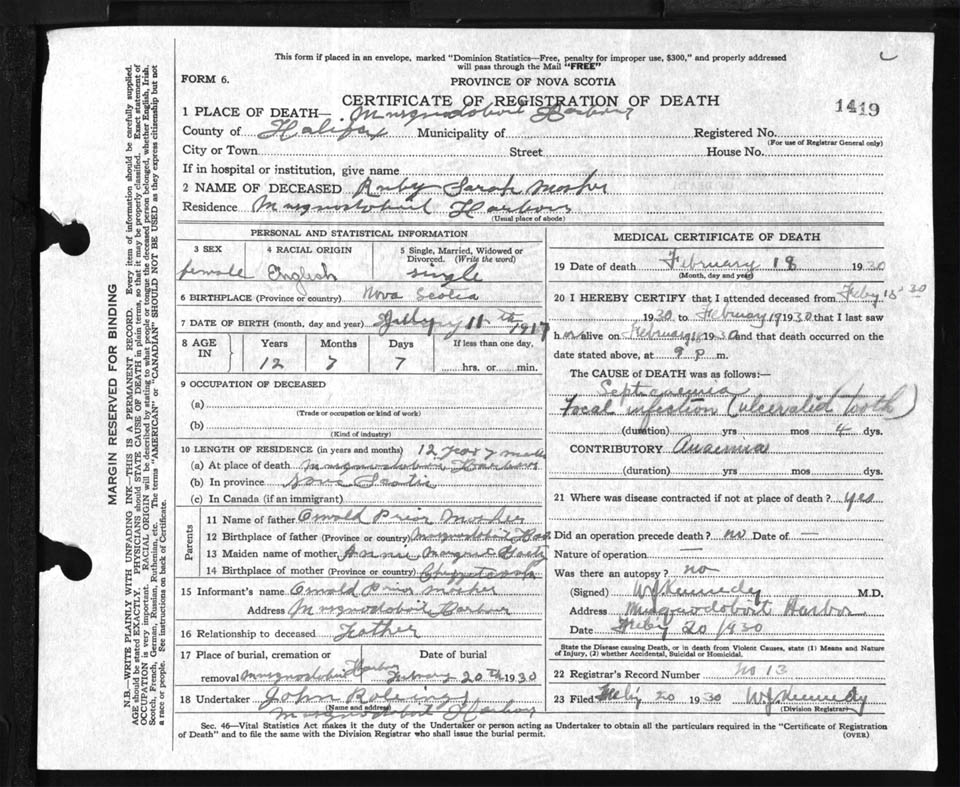 This form if placed in an envelope, marked "Dominion Statistics—Free, penalty for improper use, $300," and properly addressed
will pass through the Mail "FREE"
FORM 6.
PROVINCE OF NOVA SCOTIA
CERTIFICATE OF REGISTRATION OF DEATH
1419
1 PLACE OF DEATH— Musquodoboit Harbour
County of Halifax Municipality of Registered No.
(For use of Registrar General only)
City or Town Street House No.
If in hospital or institution, give name
2 NAME OF DECEASED Ruby Sarah Mosher
Residence Musquodoboit Harbour
(Usual place of abode)
PERSONAL AND STATISTICAL INFORMATION
3 SEX 4 RACIAL ORIGIN 5 Single, Married, Widowed or
Divorced. (Write the word)
female English single
6 BIRTHPLACE (Province or country) Nova Scotia
7 DATE OF BIRTH (month, day and year) 11th 1917
8 AGE IN Years Months Days If less than one day,
12 7 7 hrs. or min.
9 OCCUPATION OF DECEASED
(a)
(Trade or occupation or kind of work)
(b)
(Kind of industry)
10 LENGTH OF RESIDENCE (in years and months) 12 year 7 months
(a) At place of death Musquodoboit Harbour
(b) In province Nova Scotia
(c) In Canada (if an immigrant)
Parents
11 Name of father Oswald Prior Mosher
12 Birthplace of father (Province or country) Musquodoboit Har
13 Maiden name of mother Annie
14 Birthplace of mother (Province or country)
15 Informant's name Oswald Prior Mosher
Address Musquodoboit Harbour
16 Relationship to deceased Father
17 Place of burial, cremation or Date of burial
removal Musquodoboit Harbour February 20th 1930
18 Undertaker John
(Name and address)
Musquodoboit Harbour
MEDICAL CERTIFICATE OF DEATH
19 Date of death February 18 1930
(Month, day and year)
20 I HEREBY CERTIFY that I attended deceased from Feby 15 30
1930 to February 19 1930 that I last saw
h er alive on February 18 1930 and that death occurred on the
date stated above, at 9 p m.
The CAUSE OF DEATH was as follows:—
Septicaemia
Focal infection (ulcerated tooth)
(duration) yrs mos 4 dys.
CONTRIBUTORY Anaemia
(duration) yrs mos dys.
21 Where was disease contracted if not at place of death? yes
Did an operation precede death? no Date of —
Nature of operation —
Was there an autopsy? no
(Signed) W J Kennedy M.D.
Address Musquodoboit Harbor
Date Feby 20 1930
State the Disease Causing Death, or in death from Violent Causes, state (1) Means and Nature
of Injury, (2) whether Accidental, Suicidal or Homicidal.
22 Registrar's Record Number No 13
23 Filed Feby 20 1930 W J Kennedy
(Division Registrar)
Sec. 46—Vital Statistics Act makes it the duty of the Undertaker or person acting as Undertaker to obtain all the particulars required in the "Certificate of Registration
of Death" and to file the same with the Division Registrar who shall issue the burial permit.
(OVER)
MARGIN RESERVED FOR BINDING
N.B.—WRITE PLAINLY WITH UNFADING INK—THIS IS A PERMANENT RECORD. Every item of information should be carefully supplied.
AGE should be stated EXACTLY. PHYSICIANS should STATE CAUSE OF DEATH in plain terms, so that it may be properly classified. Exact statement of
OCCUPATION is very important. RACIAL ORIGIN will be described by stating to what people or tongue the deceased person belonged, whether English, Irish,
Scotch, French, German, Russian, Ruthenian, etc. The terms "AMERICAN" or "CANADIAN" SHOULD NOT BE USED as they express citizenship but not
a race or people. See instructions on back of Certificate.